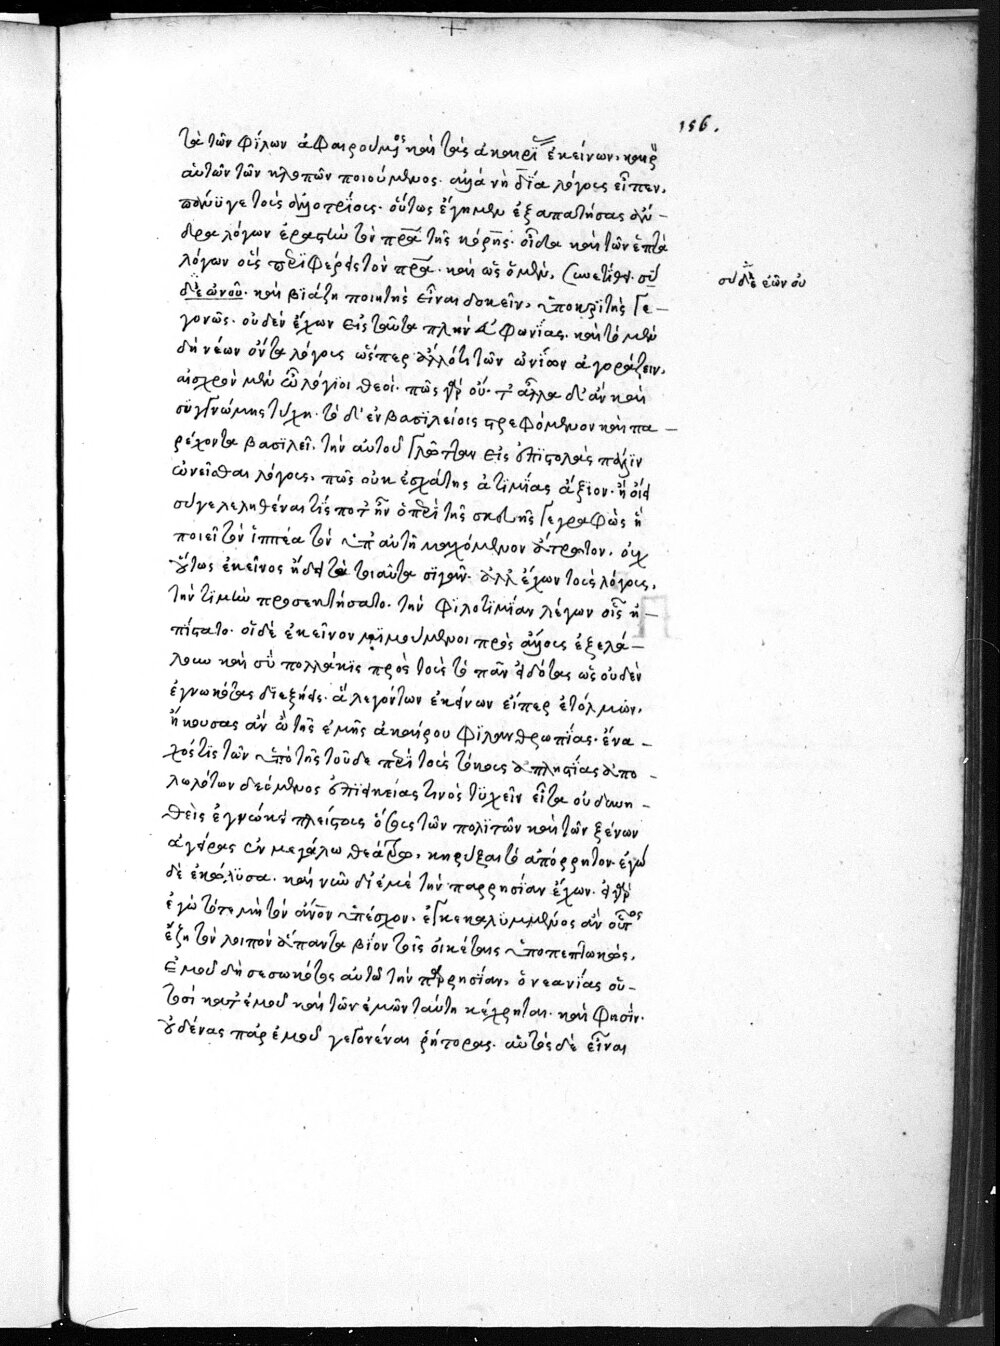 156.
τὰ τῶν φίλων ἀφαιρούμενος καὶ τὰς ἀκουρὶ ἐκείνων,
αὐτῶν τῶν κλοπῶν ποιούμενος. ἀλλὰ νὴ δία λόγοις εἶπεν,
πάνυ γε τοῖς ἀλλοτρίοις. οὕτως ἔγημεν ἐξαπατήσας ἄν-
δρα λόγων ἐραστὴν τὸν πρα τῆς κόρης. οἶδα καὶ τῶν ἑπτὰ
λόγων οἷς περιφέρει τὸν πρα. καὶ ὡς ὁ μὲν, συνετίθει. σὺ
δὲ ὠνοῦ. καὶ βιάζη ποιητὴς εἶναι δοκεῖν, ὑποκριτὴς γε-
σὺ δὲ ἐῶν οὐ
γονὼς. οὐδὲν ἔχων εἰς ταῦτα πλὴν εὐφωνίας. καὶ τὸ μὲν
δὴ νέων ὄντα λόγοις ὥσπερ ἄλλό τι τῶν ὠνίων ἀγοράζειν,
αἰσχρὸν μὲν ὦ λόγιοι θεοὶ. πῶς γὰρ οὔ. τἆλλα δ' ἂν καὶ
συγγνώμης τύχη. τὸ δ' ἐν βασιλείοις τρεφόμενον καὶ πα-
ρέχοντα βασιλεῖ, τὴν αὑτοῦ γλῶτταν εἰς ἐπιστολὰς πάλιν
ὠνεῖσθαι λόγοις, πῶς οὐκ ἐσχάτης ἀτιμίας ἄξιον. ἢ οἴει
συγελεληθέναι τίς ποτ' ἦν ὁ περὶ τῆς σκευῆς γεγραφὼς ἣ
ποιεῖ τὸν ἱππέα τὸν ὑπ' αὐτῆ μαχόμενον ἄτρωτον. οὐχ
οὕτως ἐκεῖνος ἤδει τὰ τοιαῦτα σιγᾶν. ἀλλ' ἔχων τοὺς λόγους,
τὴν τιμὴν προσεκτήσατο. τὴν φιλοτιμίαν λέγων οἷς ἠ-
πίστατο. οἱ δὲ ἐκεῖνον μιμούμενοι πρὸς ἄλλοις ἐξελά-
λουν καὶ σὺ πολλάκις πρὸς τοὺς τὸ πᾶν εἰδότας ὡς οὐδὲν
ἐγνωκότας διεξήεις. ἃ λεγόντων ἐκείνων εἴπερ ἐτόλμων,
ἤκουσας ἂν ὦ τῆς ἐμῆς ἀκαίρου φιλανθρωπίας. ἔνα-
χός τις τῶν ὑπὸ τῆς τοῦδε περὶ τοὺς τόκους ἀπληστίας ἀπο-
λωλότων δεόμενος ἐπιεικείας τινὸς τυχεῖν εἶτα οὐ δυνη-
θεὶς ἐγνώκει πλείστοις ὄχλοις τῶν πολιτῶν καὶ τῶν ξένων
ἀγείρας ἐν μεγάλω θεάτρω, κηρῦξαι τὸ ἀπόρρητον. ἐγὼ
δὲ ἐκώλυσα. καὶ νῦν δι' ἐμὲ τὴν παρρησίαν ἔχων. εἰ γὰρ
ἐγὼ τότε μὴ τὸν ἄνον ὑπέσχον, ἐγκεκαλυμμένος ἂν οὗτος
ἔζη τὸν λοιπὸν ἅπαντα βίον τοῖς οἰκέταις ὑποπεπτωκὼς,
ἐμοῦ δὴ σεσωκότος αὐτῶ τὴν παρρησίαν, ὁ νεανίας οὑ-
τοσὶ κατ' ἐμοῦ καὶ τῶν ἐμῶν ταύτη κέχρηται. καὶ φησὶν.
οὐδένας παρ' ἐμοῦ γεγονέναι ῥήτορας. αὐτὸς δὲ εἶναι